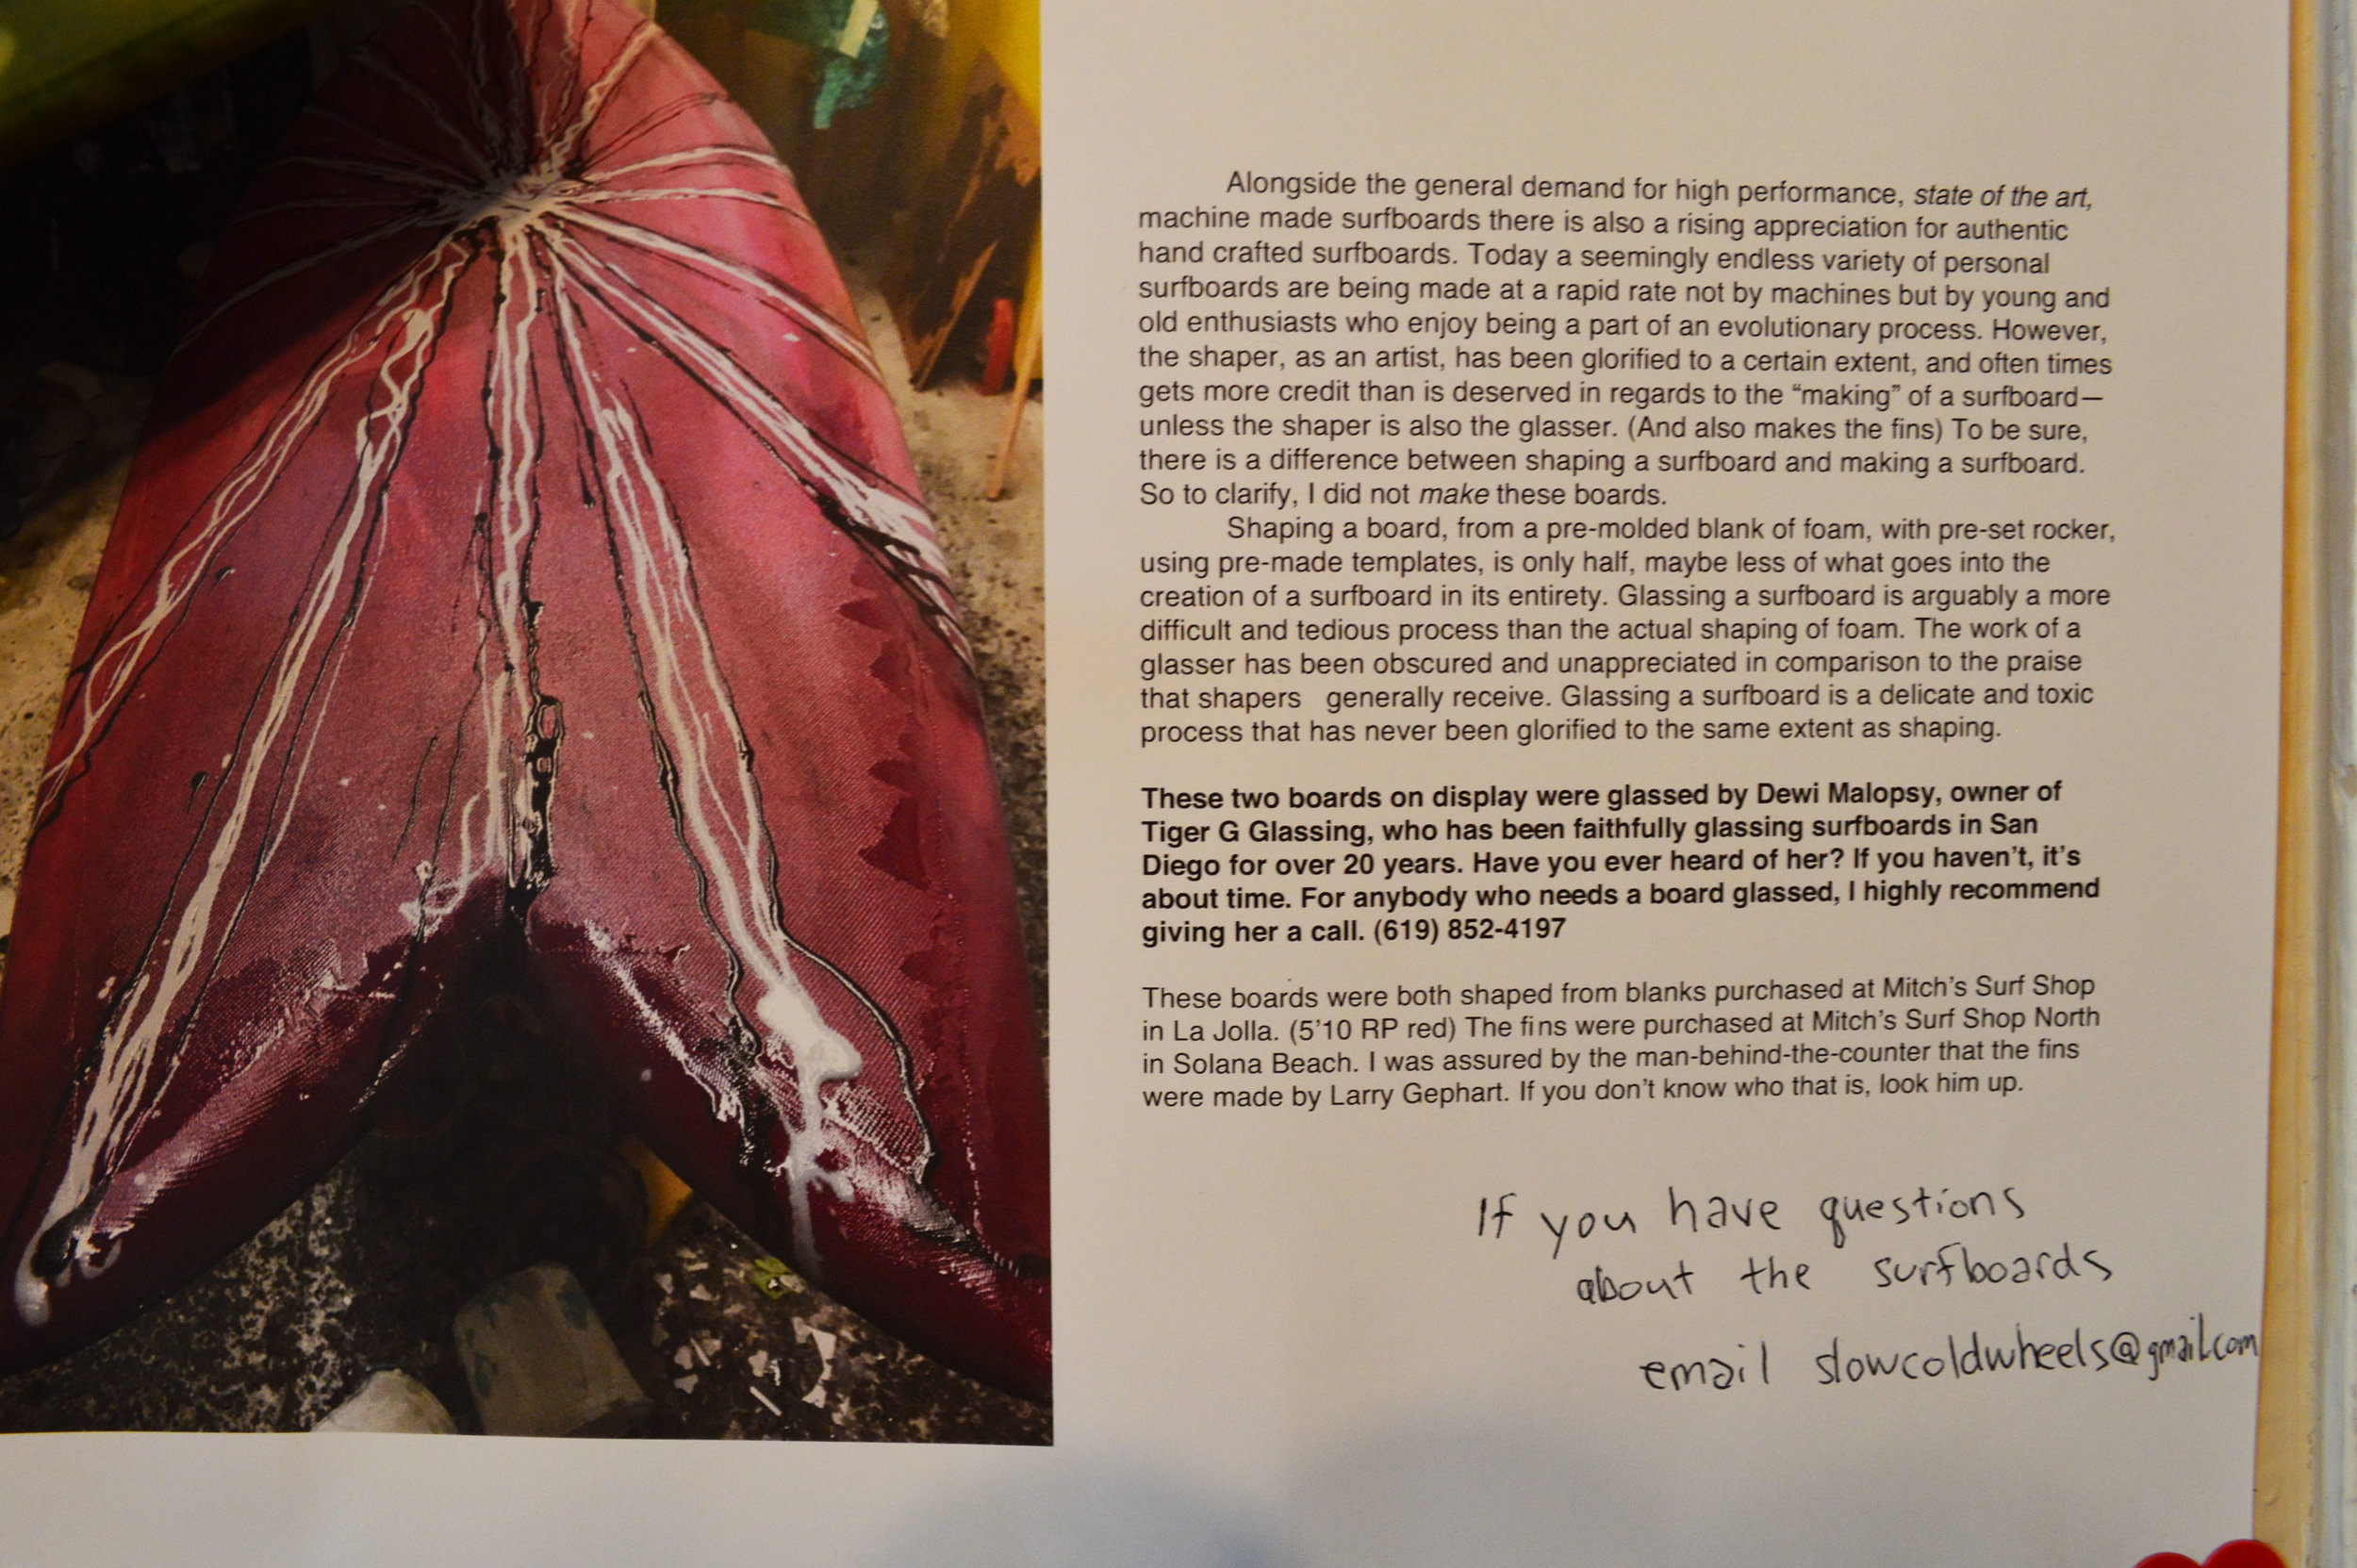 Alongside the general demand for high performance, state of the art,
machine made surfboards there is also a rising appreciation for authentic
hand crafted surfboards. Today a seemingly endless variety of personal
surfboards are being made at a rapid rate not by machines but by young and
old enthusiasts who enjoy being a part of an evolutionary process. However,
the shaper, as an artist, has been glorified to a certain extent, and often times
gets more credit than is deserved in regards to the “making” of a surfboard—
unless the shaper is also the glasser. (And also makes the fins) To be sure,
there is a difference between shaping a surfboard and making a surfboard.
So to clarify, I did not make these boards.
Shaping a board, from a pre-molded blank of foam, with pre-set rocker,
using pre-made templates, is only half, maybe less of what goes into the
creation of a surfboard in its entirety. Glassing a surfboard is arguably a more
difficult and tedious process than the actual shaping of foam. The work of a
glasser has been obscured and unappreciated in comparison to the praise
that shapers generally receive. Glassing a surfboard is a delicate and toxic
process that has never been glorified to the same extent as shaping.
These two boards on display were glassed by Dewi Malopsy, owner of
Tiger G Glassing, who has been faithfully glassing surfboards in San
Diego for over 20 years. Have you ever heard of her? If you haven’t, it’s
about time. For anybody who needs a board glassed, I highly recommend
giving her a call. (619) 852-4197
These boards were both shaped from blanks purchased at Mitch’s Surf Shop
in La Jolla. (5’10 RP red) The fins were purchased at Mitch’s Surf Shop North
in Solana Beach. I was assured by the man-behind-the-counter that the fins
were made by Larry Gephart. If you don’t know who that is, look him up.
If you have questions
about the surfboards
email slowcoldwheels@gmail.com